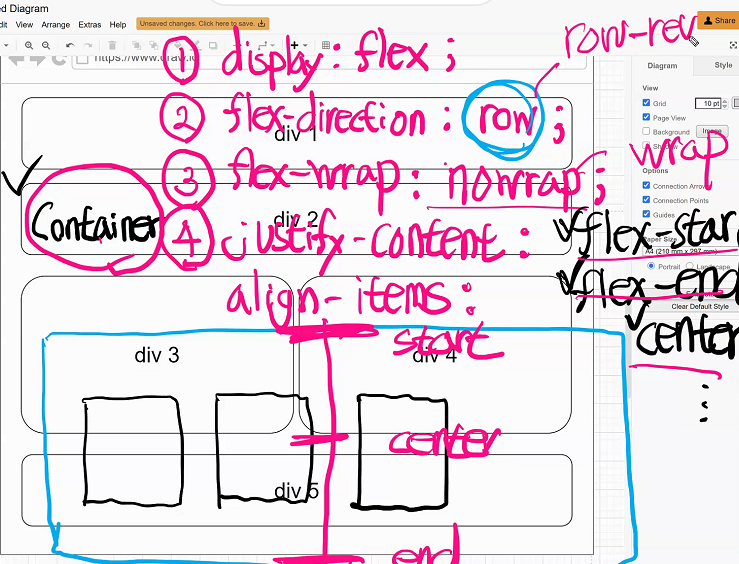 ed Diagram
dit View Arrange Extras Help Unsaved changes. Click here to save. Share
https://www.draw.io
① display: flex;
row-rev
② flex-direction: row;
div 1
③ flex-wrap: nowrap;
wrap
Container
div 2
④ justify-content:
flex-star
flex-end
center
align-items:
start
div 3
div 4
center
div 5
end
Diagram Style
View
Grid 10 pt
Page View
Background Image
Options
Connection Arrow
Connection Points
Guides
A4 (210 mm x 297 mm)
Portrait Landscape
Clear Default Style